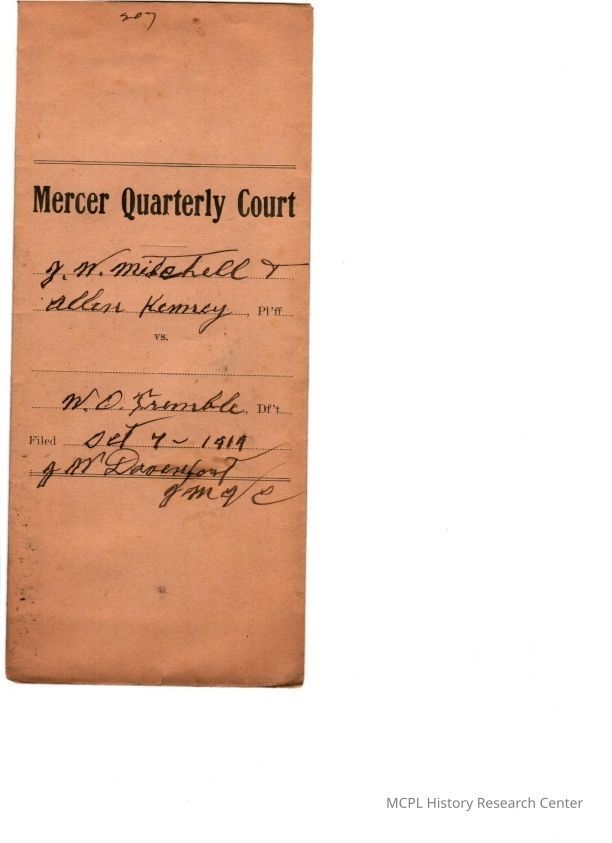 207
Mercer Quarterly Court
J. W. Mitchell &
Allen Kenney, Pl'ff.
vs.
W. O. Tremble, Df't.
Filed Oct 7 - 1919
J W Davenport
MCPL History Research Center